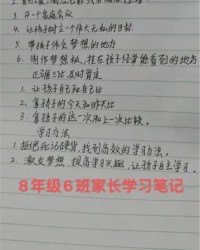 3. 开一个家庭会议
4. 让孩子树立一个伟大无私的目标
5. 带孩子体会梦想的地方
6. 制作梦想板,挂在孩子经常能看到的地方
正确对比,及时肯定
1. 让孩子自己和自己比
2. 拿孩子的今天和昨天比
3. 拿孩子的这一次和上一次比较。
学习方法
1. 拒绝死记硬背,找到高效的学习方法。
2. 激发梦想,提高学习兴趣,让孩子自主学习。
8年级6班家长学习笔记